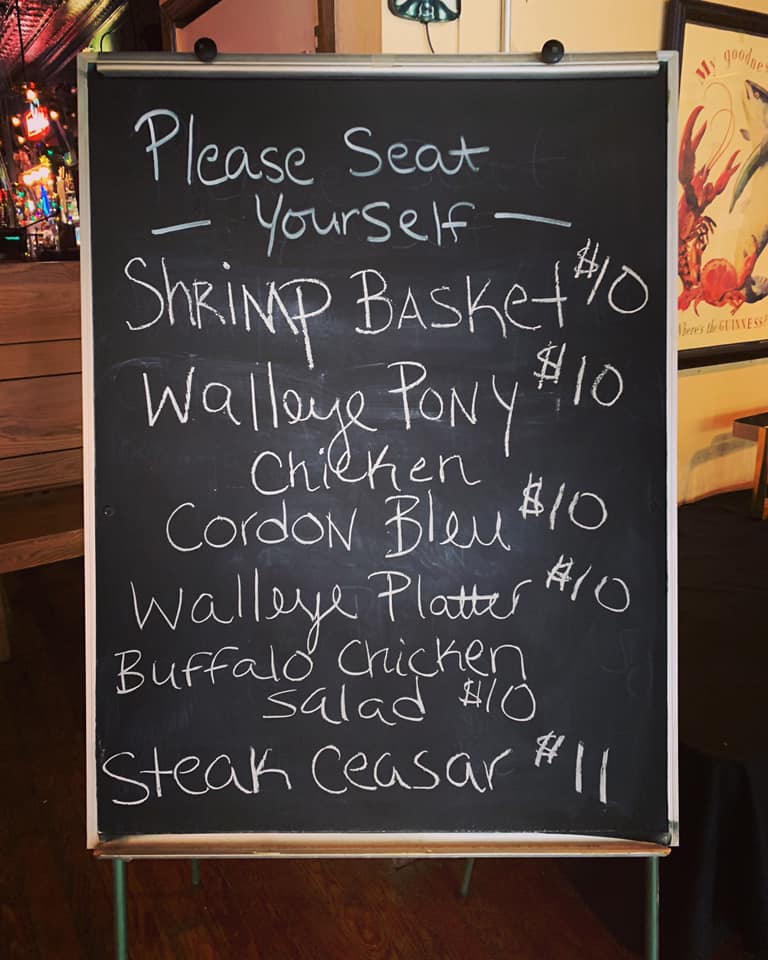 Please Seat
— Yourself —
Shrimp Basket $10
Walleye Pony $10
Chicken
Cordon Bleu $10
Walleye Platter $10
Buffalo Chicken
Salad $10
Steak Ceasar $11
My goodnes
here's the GUINNESS?